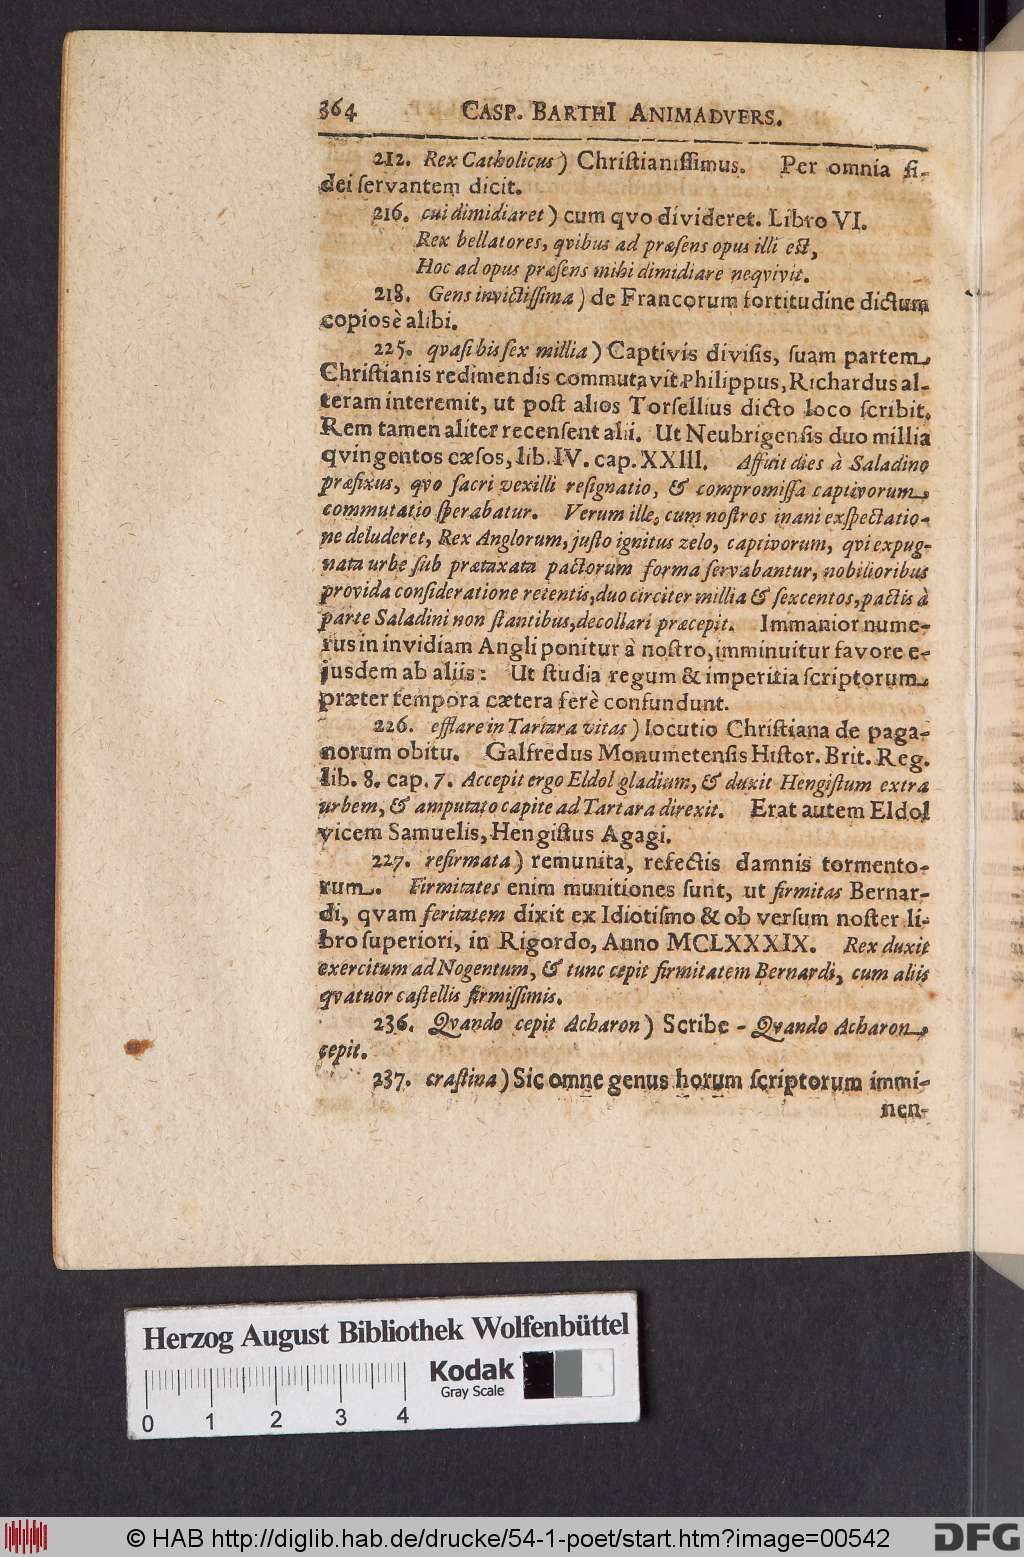 364 CASP. BARTHI ANIMADVERS.
212. Rex Catholicus) Christianissimus. Per omnia fi-
dei servantem dicit.
216. cui dimidiaret) cum qvo divideret. Libro VI.
Rex bellatores, qvibus ad præsens opus illi est,
Hoc ad opus præsens mihi dimidiare neqvivit.
218. Gens invictissima) de Francorum fortitudine dictum
copiosè alibi.
225. qvasi bis sex millia) Captivis divisis, suam partem
Christianis redimendis commutavit Philippus, Richardus al-
teram interemit, ut post alios Torsellius dicto loco scribit.
Rem tamen aliter recensent alii. Ut Neubrigensis duo millia
qvingentos cæsos, lib. IV. cap. XXIII. Affuit dies à Saladino
præfixus, qvo sacri vexilli resignatio, & compromissa captivorum
commutatio sperabatur. Verum ille, cum nostros inani exspectatio-
ne deluderet, Rex Anglorum, justo ignitus zelo, captivorum, qvi expug-
nata urbe sub prætaxata pactorum forma servabantur, nobilioribus
provida consideratione retentis, duo circiter millia & sexcentos, pactis à
parte Saladini non stantibus, decollari præcepit. Immanior nume-
rus in invidiam Angli ponitur à nostro, imminuitur favore e-
jusdem ab aliis: Ut studia regum & imperitia scriptorum
præter tempora cætera ferè confundunt.
226. efflare in Tartara vitas) locutio Christiana de paga-
norum obitu. Galfredus Monumetensis Histor. Brit. Reg.
lib. 8. cap. 7. Accepit ergo Eldol gladium, & duxit Hengistum extra
urbem, & amputato capite ad Tartara direxit. Erat autem Eldol
vicem Samuelis, Hengistus Agagi.
227. refirmata) remunita, refectis damnis tormento-
rum. Firmitates enim munitiones sunt, ut firmitas Bernar-
di, qvam feritatem dixit ex Idiotismo & ob versum noster li-
bro superiori, in Rigordo, Anno MCLXXXIX. Rex duxit
exercitum ad Nogentum, & tunc cepit firmitatem Bernardi, cum aliis
qvatuor castellis firmissimis.
236. Qvando cepit Acharon) Scribe - Qvando Acharon
cepit.
237. crastina) Sic omne genus horum scriptorum immi-
nen-
Herzog August Bibliothek Wolfenbüttel
Kodak
Gray Scale
0 1 2 3 4
© HAB http://diglib.hab.de/drucke/54-1-poet/start.htm?image=00542
DFG